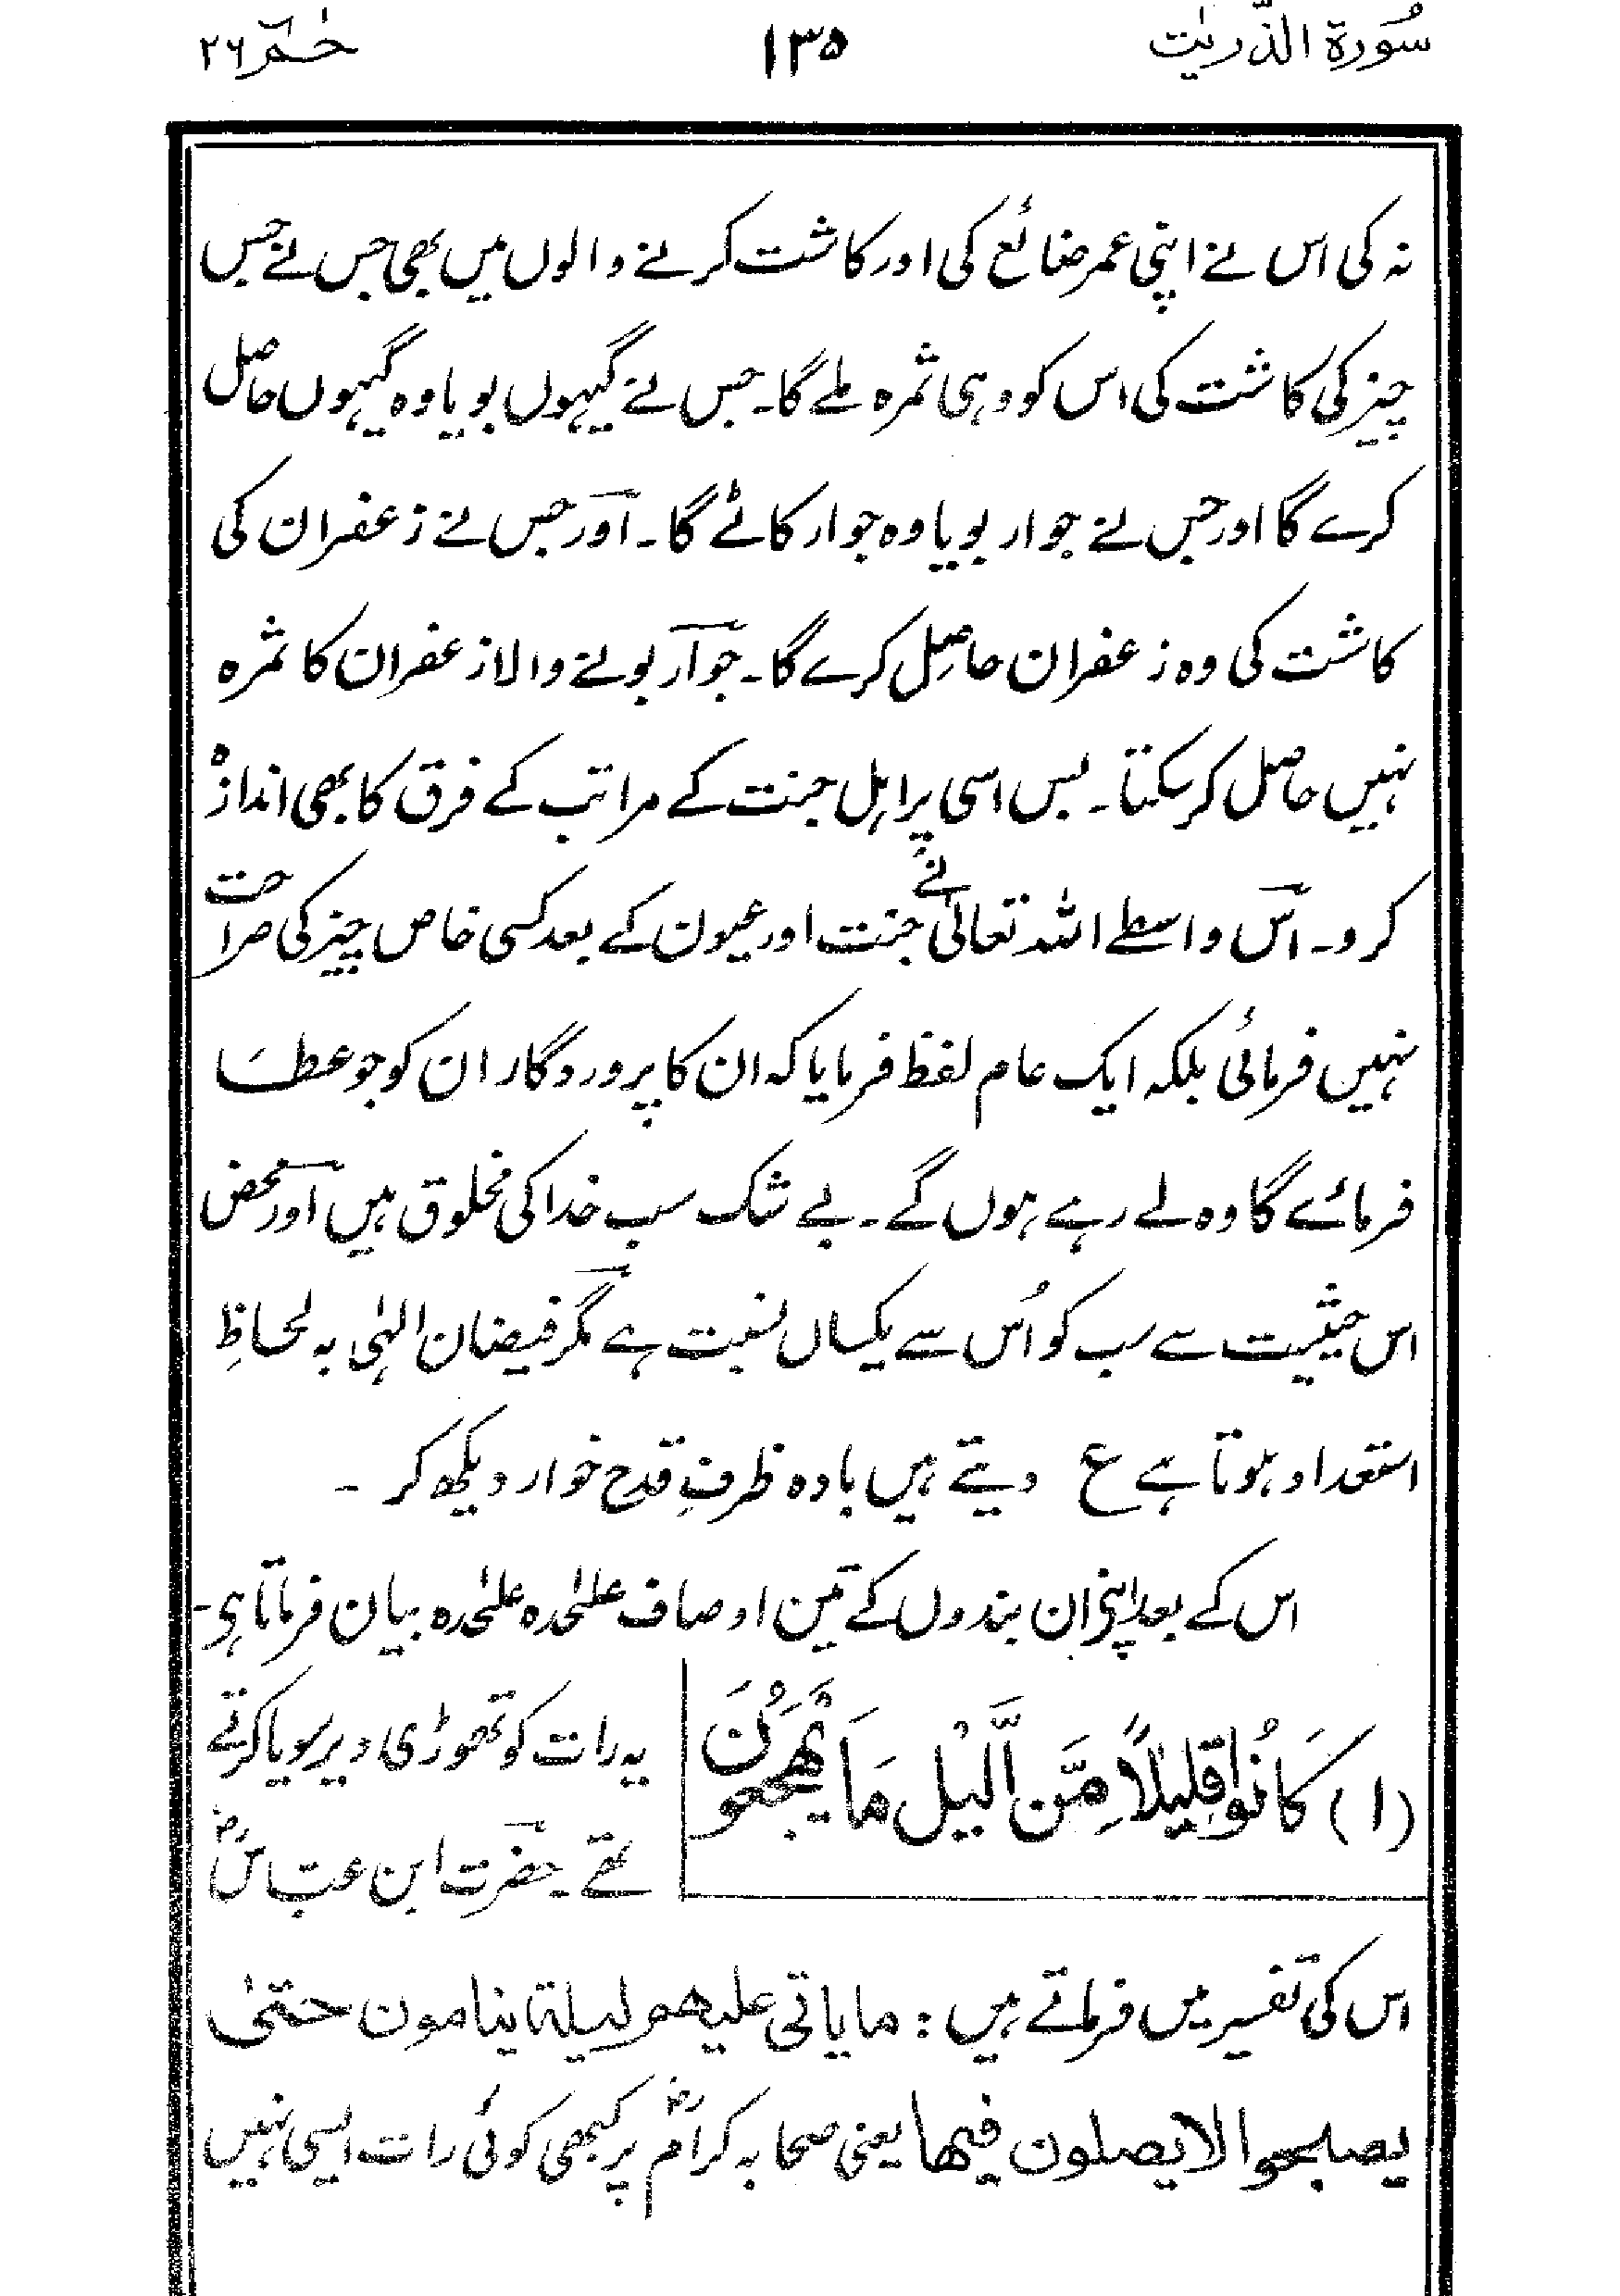 سُورۃ الذّٰریٰت ۱۳۵ حٰمٓ ۲۶
نہ کی اس نے اپنی عمر ضائع کی اور کاشت کرنے والوں میں بھی جس نے جس
چیز کی کاشت کی اس کو وہی ثمرہ ملے گا۔ جس نے گیہوں بویا وہ گیہوں حاصل
کرے گا اور جس نے جوار بویا وہ جوار کاٹے گا۔ اور جس نے زعفران کی
کاشت کی وہ زعفران حاصِل کرے گا۔ جوار بونے والا زعفران کا ثمرہ
نہیں حاصل کر سکتا۔ بس اسی پر اہل جنت کے مراتب کے فرق کا بھی اندازہ
کرو۔ اس واسطے اللہ تعالیٰ نے جنت اور عیون کے بعد کسی خاص چیز کی صراحت
نہیں فرمائی بلکہ ایک عام لفظ فرمایا کہ ان کا پروردگار ان کو جو عطا
فرمائے گا وہ لے رہے ہوں گے۔ بے شک سب خدا کی مخلوق ہیں اور محض
اس حیثیت سے سب کو اُس سے یکساں نسبت ہے مگر فیضان الہٰی بہ لحاظِ
استعداد ہوتا ہے ع دیتے ہیں بادہ ظرفِ قدح خوار دیکھ کر ۔
اس کے بعد اپنی ان بندوں کے تین اوصاف علیٰحدہ علیٰحدہ بیان فرماتا ہی۔
(۱) كَانُوا قَلِيلًا مِّنَ الَّيْلِ مَا يَهْجَعُونَ
یہ رات کو تھوڑی دیر سویا کرتے
تھے ۔ حضرت ابن عباسؓ
اس کی تفسیر میں فرماتے ہیں : ما یاتی علیھم لیلة ینامون حتیٰ
یصبحوا الا یصلون فیھا یعنی صحابہ کرامؓ پر کبھی کوئی رات ایسی نہیں